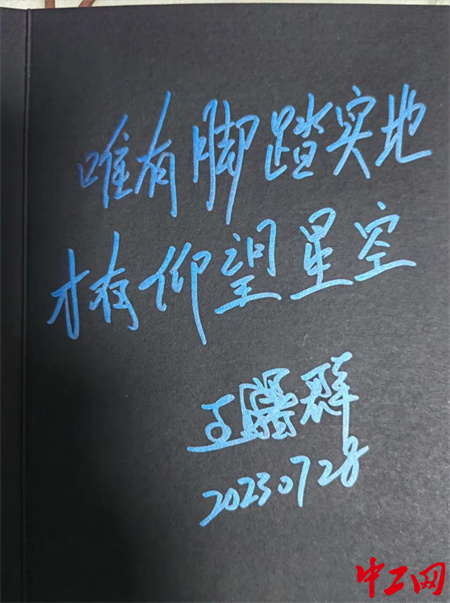 唯有脚踏实地
才有仰望星空
王曙群
20230728
中工网